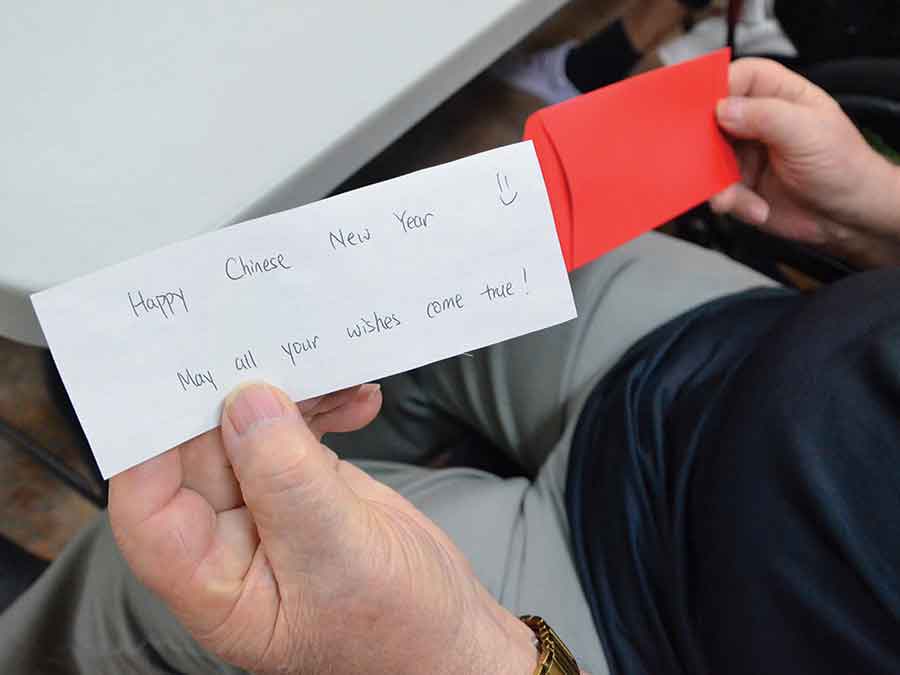 Happy Chinese New Year
May all your wishes come true!